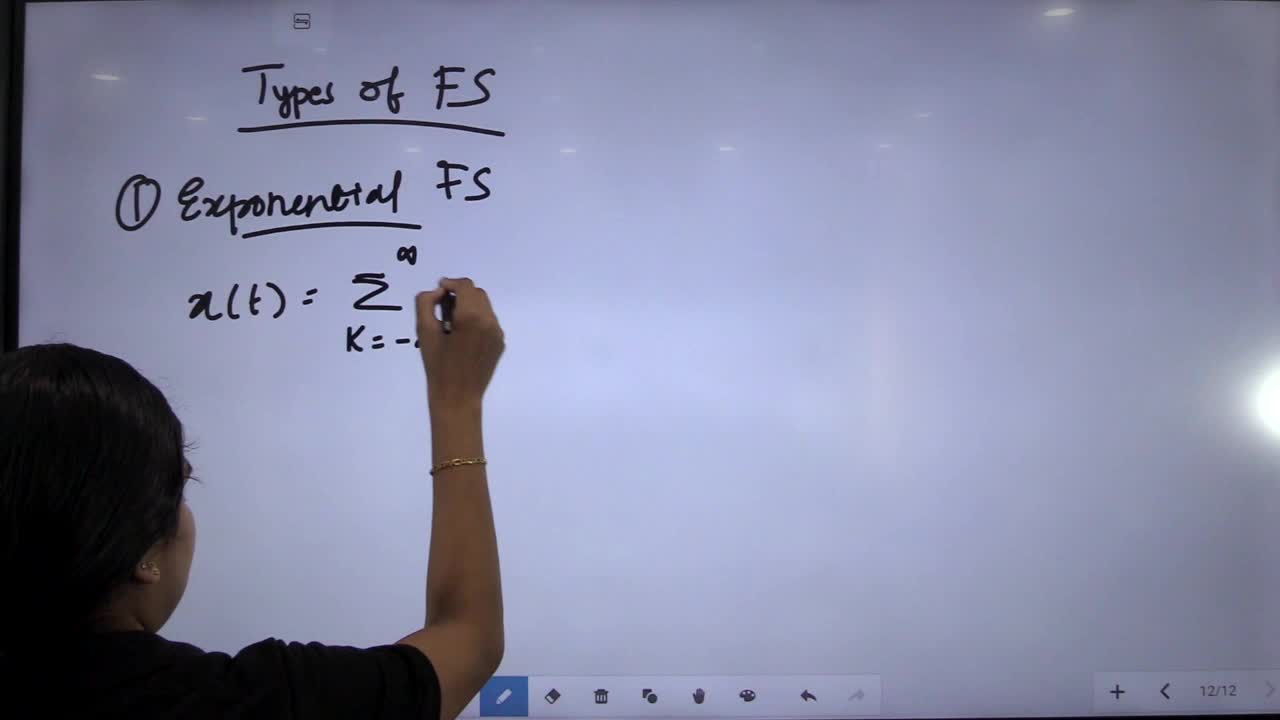 Types of FS
① Exponential FS
x(t) = ∑ ∞
K = -
12/12